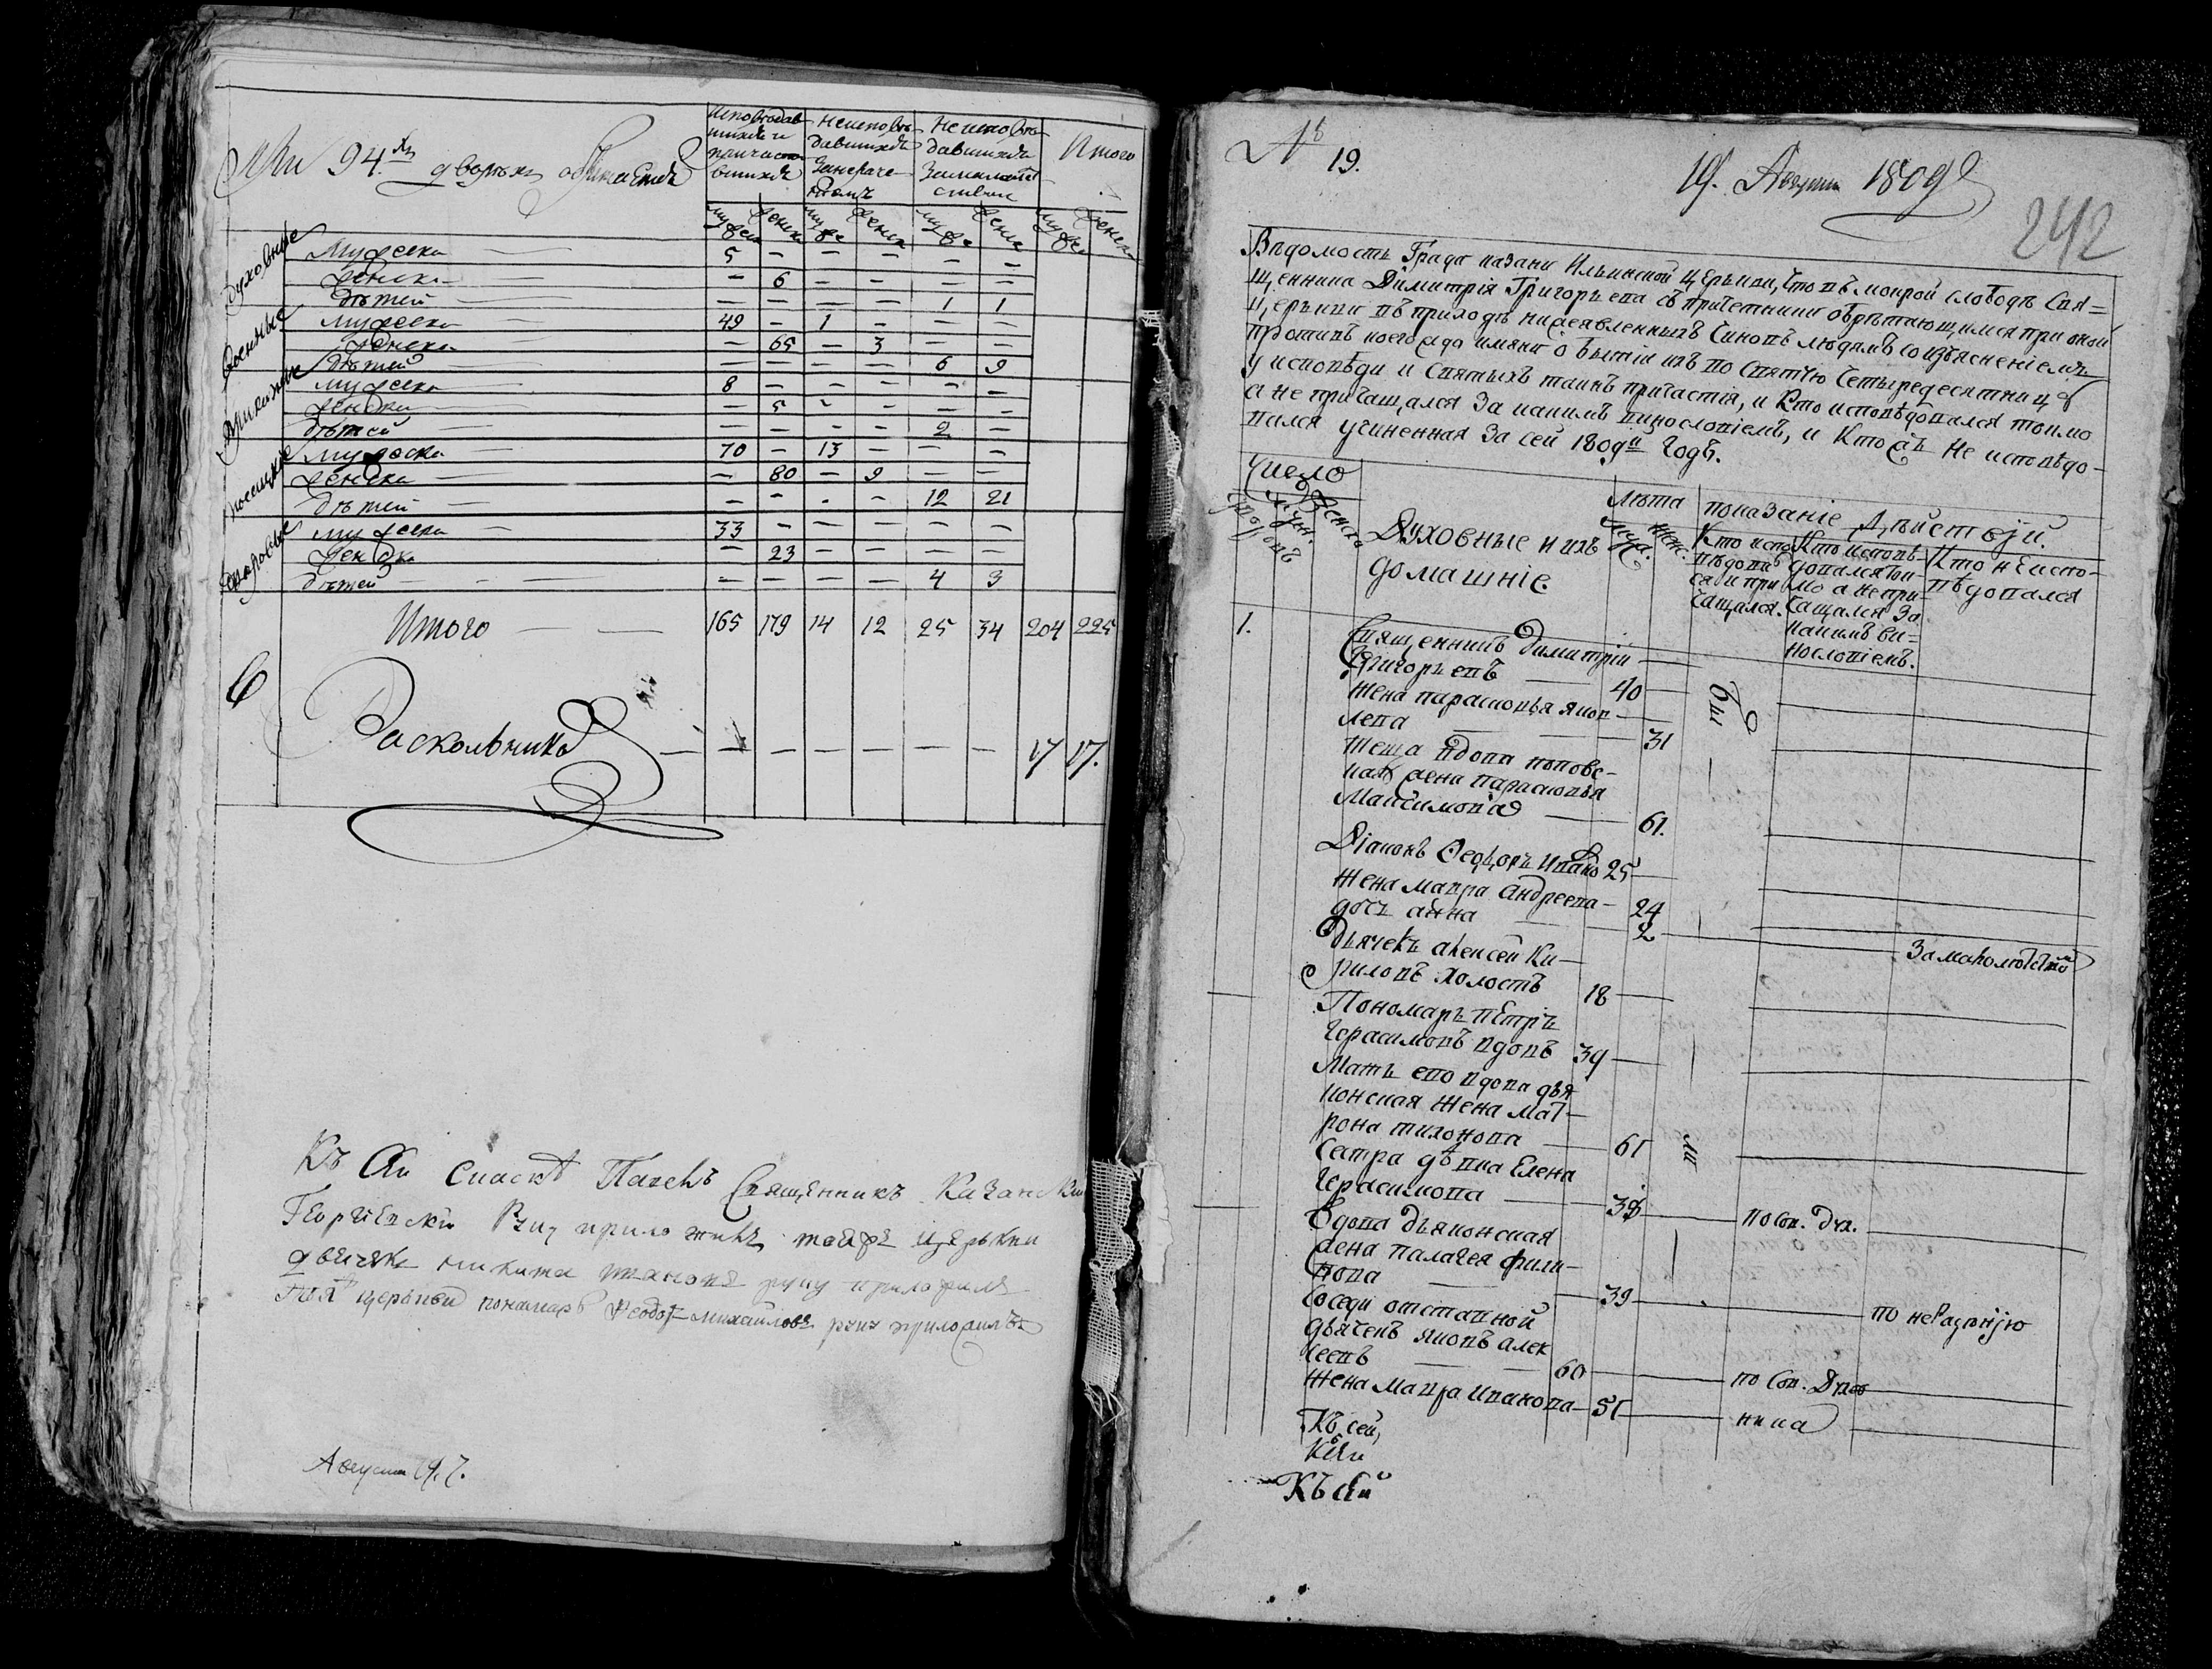 При 94.хъ дворахъ обитаемыхъ
Исповѣдав-
шихся и
причасти-
вшихся
Неисповѣ-
давшихся
за нераче-
ніемъ
Неисповѣ-
давшихся
за малолѣт
ствомъ
Итого
муж женск муж женск муж женск муж женск
Духовные
Мужеска 5 — — — — —
Женска — 6 — — — —
Дѣтей — — — — 1 1
Военные
Мужеска 49 — 1 — — —
Женска — 65 — 3 — —
Дѣтей — — — — 6 9
Приказные
Мужеска 8 — — — — —
Женска — 5 — — — —
Дѣтей — — — — 2 —
Посацкие
Мужеска 70 — 13 — — —
Женска — 80 — 9 — —
Дѣтей — — — — 12 21
Дворовые
Мужеска 33 — — — — —
Женска — 23 — — — —
Дѣтей — — — — 4 3
Итого 165 179 14 12 25 34 204 225
Раскольниковъ — — — — — — 17 17.
Къ сей Священникъ Казанский
руку приложилъ тойже церькви
дьячекъ никита руку приложилъ
Той церькви пономарь Ѳеодотъ михайловъ руку приложилъ
Августа 19.
№ 19.
19. Августа 1809
242
Вѣдомость Града казани Ильинской церькви, что въ мокрой слободѣ Свя=
щенника Димитрія Григорьева съ причетники обрѣтающимися при оной
церькви въ приходѣ нижеявленныхъ чиновъ людямъ со изъясненіемъ
противъ коегождо имяни о бытіи ихъ во Святую Четыредесятницу
у исповѣди и Святыхъ таинъ причастія, и Кто исповѣдовался токмо
а не причащался За какимъ винословіемъ, и Ктожъ Не исповѣдо-
вался учиненная За сей 1809й Годъ.
Число
дворовъ
муж.
Женск
Духовные и ихъ
домашніе
Лѣта
муж.
жен.
показаніе дѣйствій.
Кто испо
вѣдовал
ся и при
чащался.
Кто исповѣ-
довался ток-
мо а не при-
чащался За
какимъ ви-
нословіемъ.
Кто не испо-
вѣдовался
1.
Священникъ Димитрій
Григорьевъ — 40
Жена парасковья яков-
лева — 31
Теща вдова поповс-
кая жена парасковья
Максимова — 61.
Діаконъ Ѳедоръ Ивано 25
Жена мавра андреева — 24
дочь анна — 2 За малолѣтств
Дьячекъ алексей Ки-
риловъ холостъ 18
Пономарь пётръ
Герасимовъ вдовъ 39
Мать ево вдова дья
конская жена мат-
рона тихонова — 61
Сестра дѣвка Елена
Герасимова — 38 по сов. дхв.
Вдова дьяконская
жена палагея фили-
пова — 39 по нерадѣнію
Соседи отставной
дьяченъ яковъ алек
сеевъ — 60 по сов. Дхов
Жена мавра иванова — 51 ника
Бы
ли
Къ сей,
Къ сей